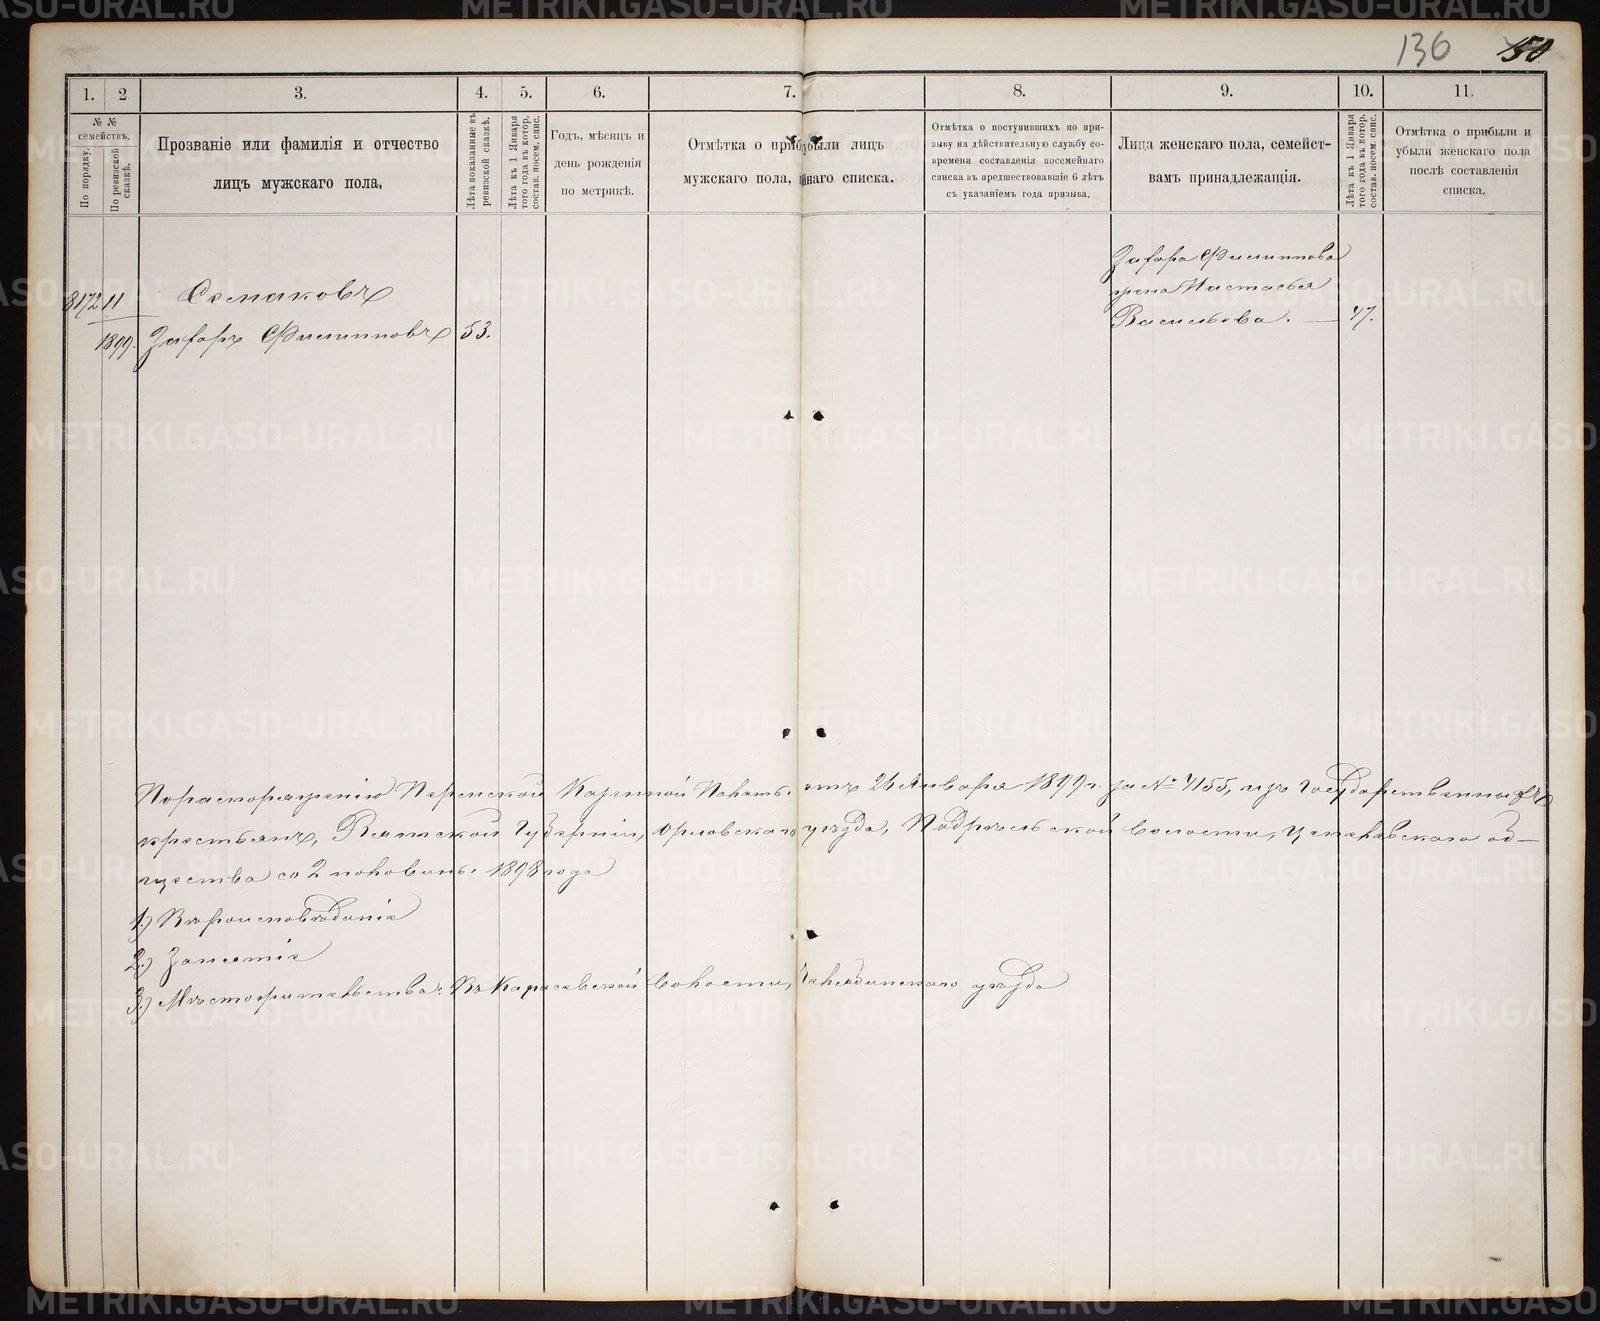 136 150
1. 2 3. 4. 5. 6. 7. 8. 9. 10. 11.
№ №
семействъ.
По порядку.
По ревизской
сказкѣ.
Прозваніе или фамилія и отчество
лицъ мужскаго пола.
Лѣта показанные въ
ревизской сказкѣ.
Лѣта къ 1 Января
того года въ котор.
состав. посем. спис.
Годъ, мѣсяцъ и
день рожденія
по метрикѣ.
Отмѣтка о прибыли лицъ
мужскаго пола, наго списка.
Отмѣтка о поступившихъ по при-
зыву на дѣйствительную службу со-
времени составленія посемейнаго
списка въ предшествовавшіе 6 лѣтъ
съ указаніемъ года призыва.
Лица женскаго пола, семейст-
вамъ принадлежащія.
Лѣта къ 1 Января
того года въ котор.
состав. посем. спис.
Отмѣтка о прибыли и
убыли женскаго пола
послѣ составленія
списка.
8172 11 Семаковъ
1899. Захаръ Филипповъ 53.
Захара Филиппова
жена Настасья
Васильева. — 47.
По распоряженію Пермской Казенной Палаты отъ 26 Января 1899 г. за № 4155, изъ Государственныхъ
крестьянъ, Вятской Губерніи, Орловскаго уѣзда, Подрѣльской волости, об-
щества со 2 половины 1898 года
1.) Вѣроисповѣданіе
2.) Занятіе
3.) Мѣстожительства: Въ Карасевской волости, Челябинскаго уѣзда
METRIKI.GASO-URAL.RU